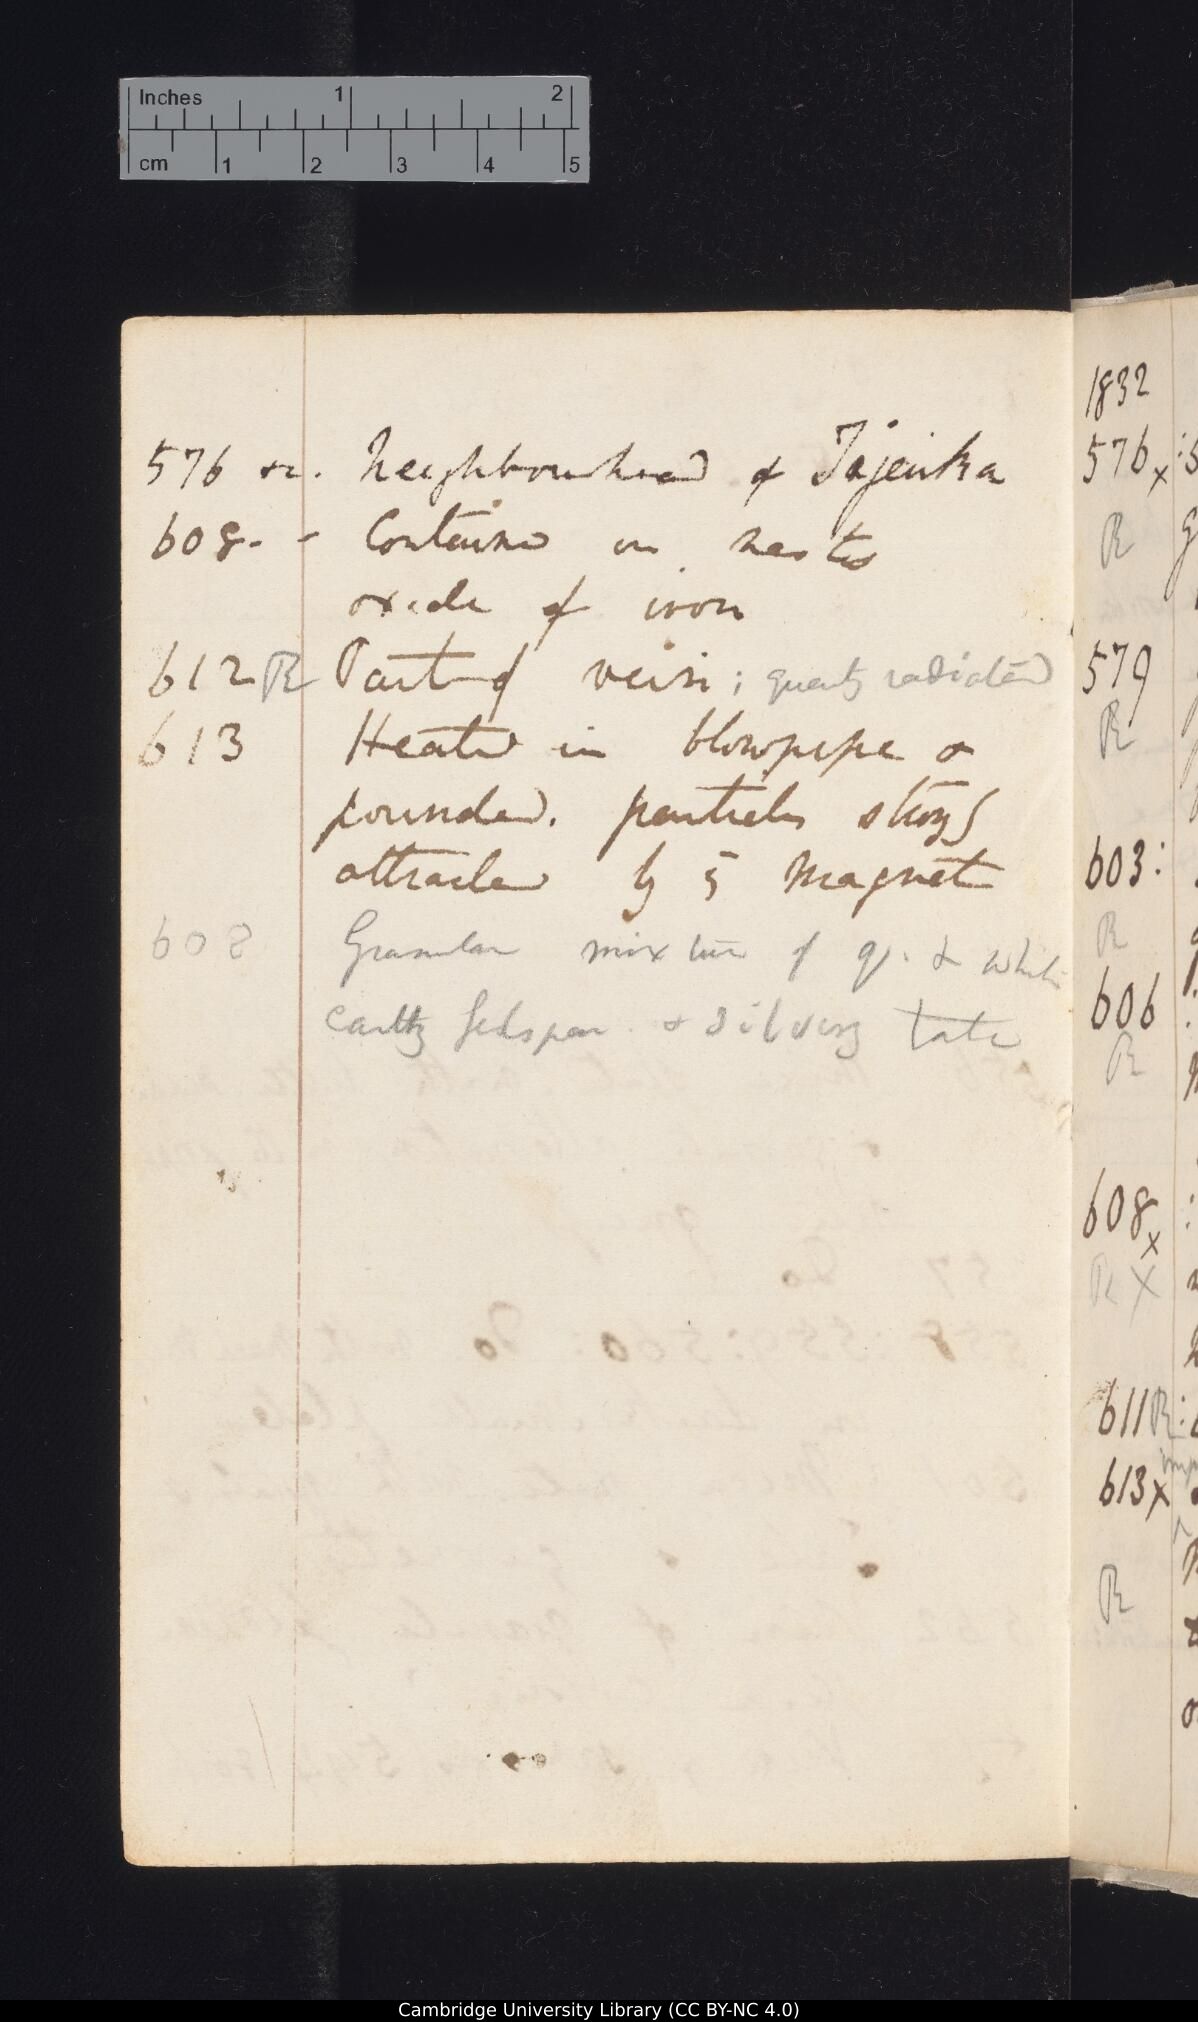 Inches 1 2
cm 1 2 3 4 5
576 &c. Neighbourhead of Tajeuka
608. - Contained in nests
oxide of iron
612 R Part of vein; quartz radiated
613 Heated in blowpipe &
pounded. particles strongly
attracted by 5 Magnet
608 Granular mixture of q. & white
earthy felspar. & silvery talc
1832
576x
R
579
R
603:
R
606
R
608x
R X
611 R:
613x
R
Cambridge University Library (CC BY-NC 4.0)